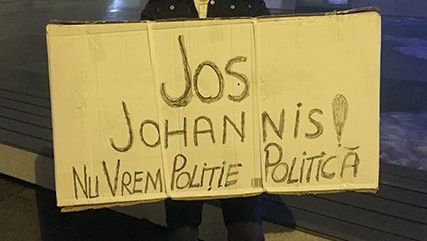 JOS
JOHANNIS!
NU VREM POLIȚIE POLITICĂ